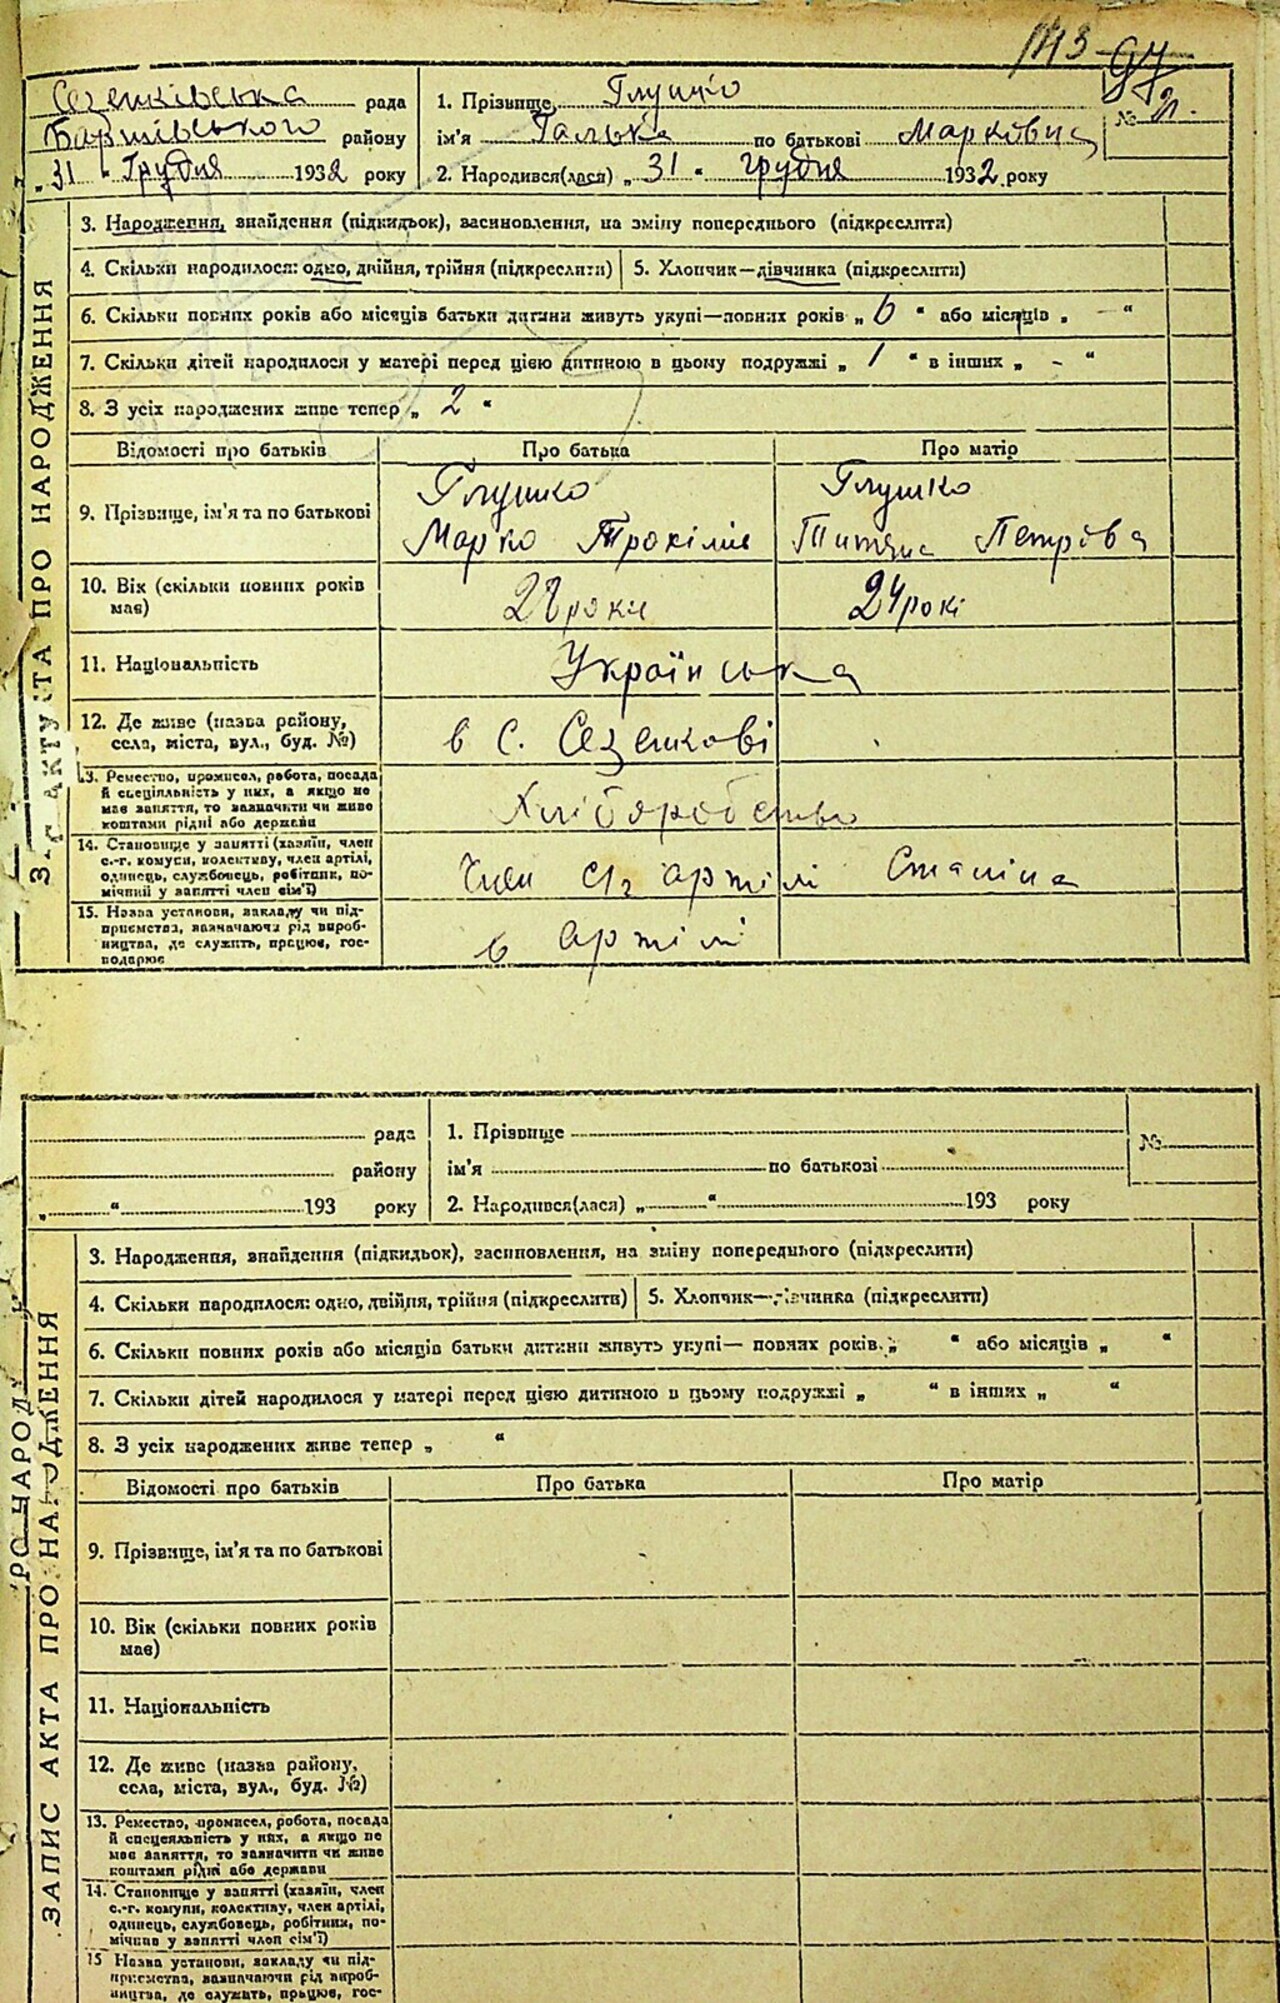 143 97
Сезенківська рада
Баришівського району
„ 31 “ Грудня 1932 року
1. Прізвище Глушко
ім'я Галька по батькові Марковна
2. Народився(лася) „ 31 “ грудня 1932 року
№ 2.
З. АКТУ СТА ПРО НАРОДЖЕННЯ
3. Народження, знайдення (підкидьок), засиновлення, на зміну попереднього (підкреслити)
4. Скільки народилося: одно, двійня, трійня (підкреслити)
5. Хлопчик—дівчинка (підкреслити)
6. Скільки повних років або місяців батьки дитини живуть укупі—повних років „ 6 “ або місяців „ — “
7. Скільки дітей народилося у матері перед цією дитиною в цьому подружжі „ 1 “ в інших „ - “
8. З усіх народжених живе тепер „ 2 “
Відомості про батьків Про батька Про матір
9. Прізвище, ім'я та по батькові
Глушко
Марко
Глушко
Петрова
10. Вік (скільки повних років має)
роки
24 рокі
11. Національність
Українська
12. Де живе (назва району, села, міста, вул., буд. №)
в с. Сезенкові
13. Ремество, промисел, робота, посада
й спеціяльність у них, а якщо не
має заняття, то зазначити чи живе
коштами рідні або держави
Хліборобство
14. Становище у занятті (хазяїн, член
с.-г. комуни, колективу, член артілі,
одинець, службовець, робітник, по-
мічний у занятті член сім'ї)
Член артілі Сталіна
15. Назва установи, закладу чи під-
приємства, зазначаючи рід вироб-
ництва, де служить, працює, гос-
подарює
в артілі
рада
району
„ “ 193 року
1. Прізвище
ім'я по батькові
2. Народився(лася) „ “ 193 року
№
РО НАРОДУ
ЗАПИС АКТА ПРО НАРОДЖЕННЯ
3. Народження, знайдення (підкидьок), засиновлення, на зміну попереднього (підкреслити)
4. Скільки народилося: одно, двійня, трійня (підкреслити)
5. Хлопчик—дівчинка (підкреслити)
6. Скільки повних років або місяців батьки дитини живуть укупі— повних років „ “ або місяців „ “
7. Скільки дітей народилося у матері перед цією дитиною в цьому подружжі „ “ в інших „ “
8. З усіх народжених живе тепер „ “
Відомості про батьків Про батька Про матір
9. Прізвище, ім'я та по батькові
10. Вік (скільки повних років
має)
11. Національність
12. Де живе (назва району,
села, міста, вул., буд. №)
13. Ремество, промисел, робота, посада
й спеціяльність у них, а якщо не
має заняття, то зазначити чи живе
коштами рідні або держави
14. Становище у занятті (хазяїн, член
с.-г. комуни, колективу, член артілі,
одинець, службовець, робітник, по-
мічник у занятті член сім'ї)
15 Назва установи, закладу чи під-
приємства, зазначаючи рід вироб-
ництва, де служить, працює, гос-